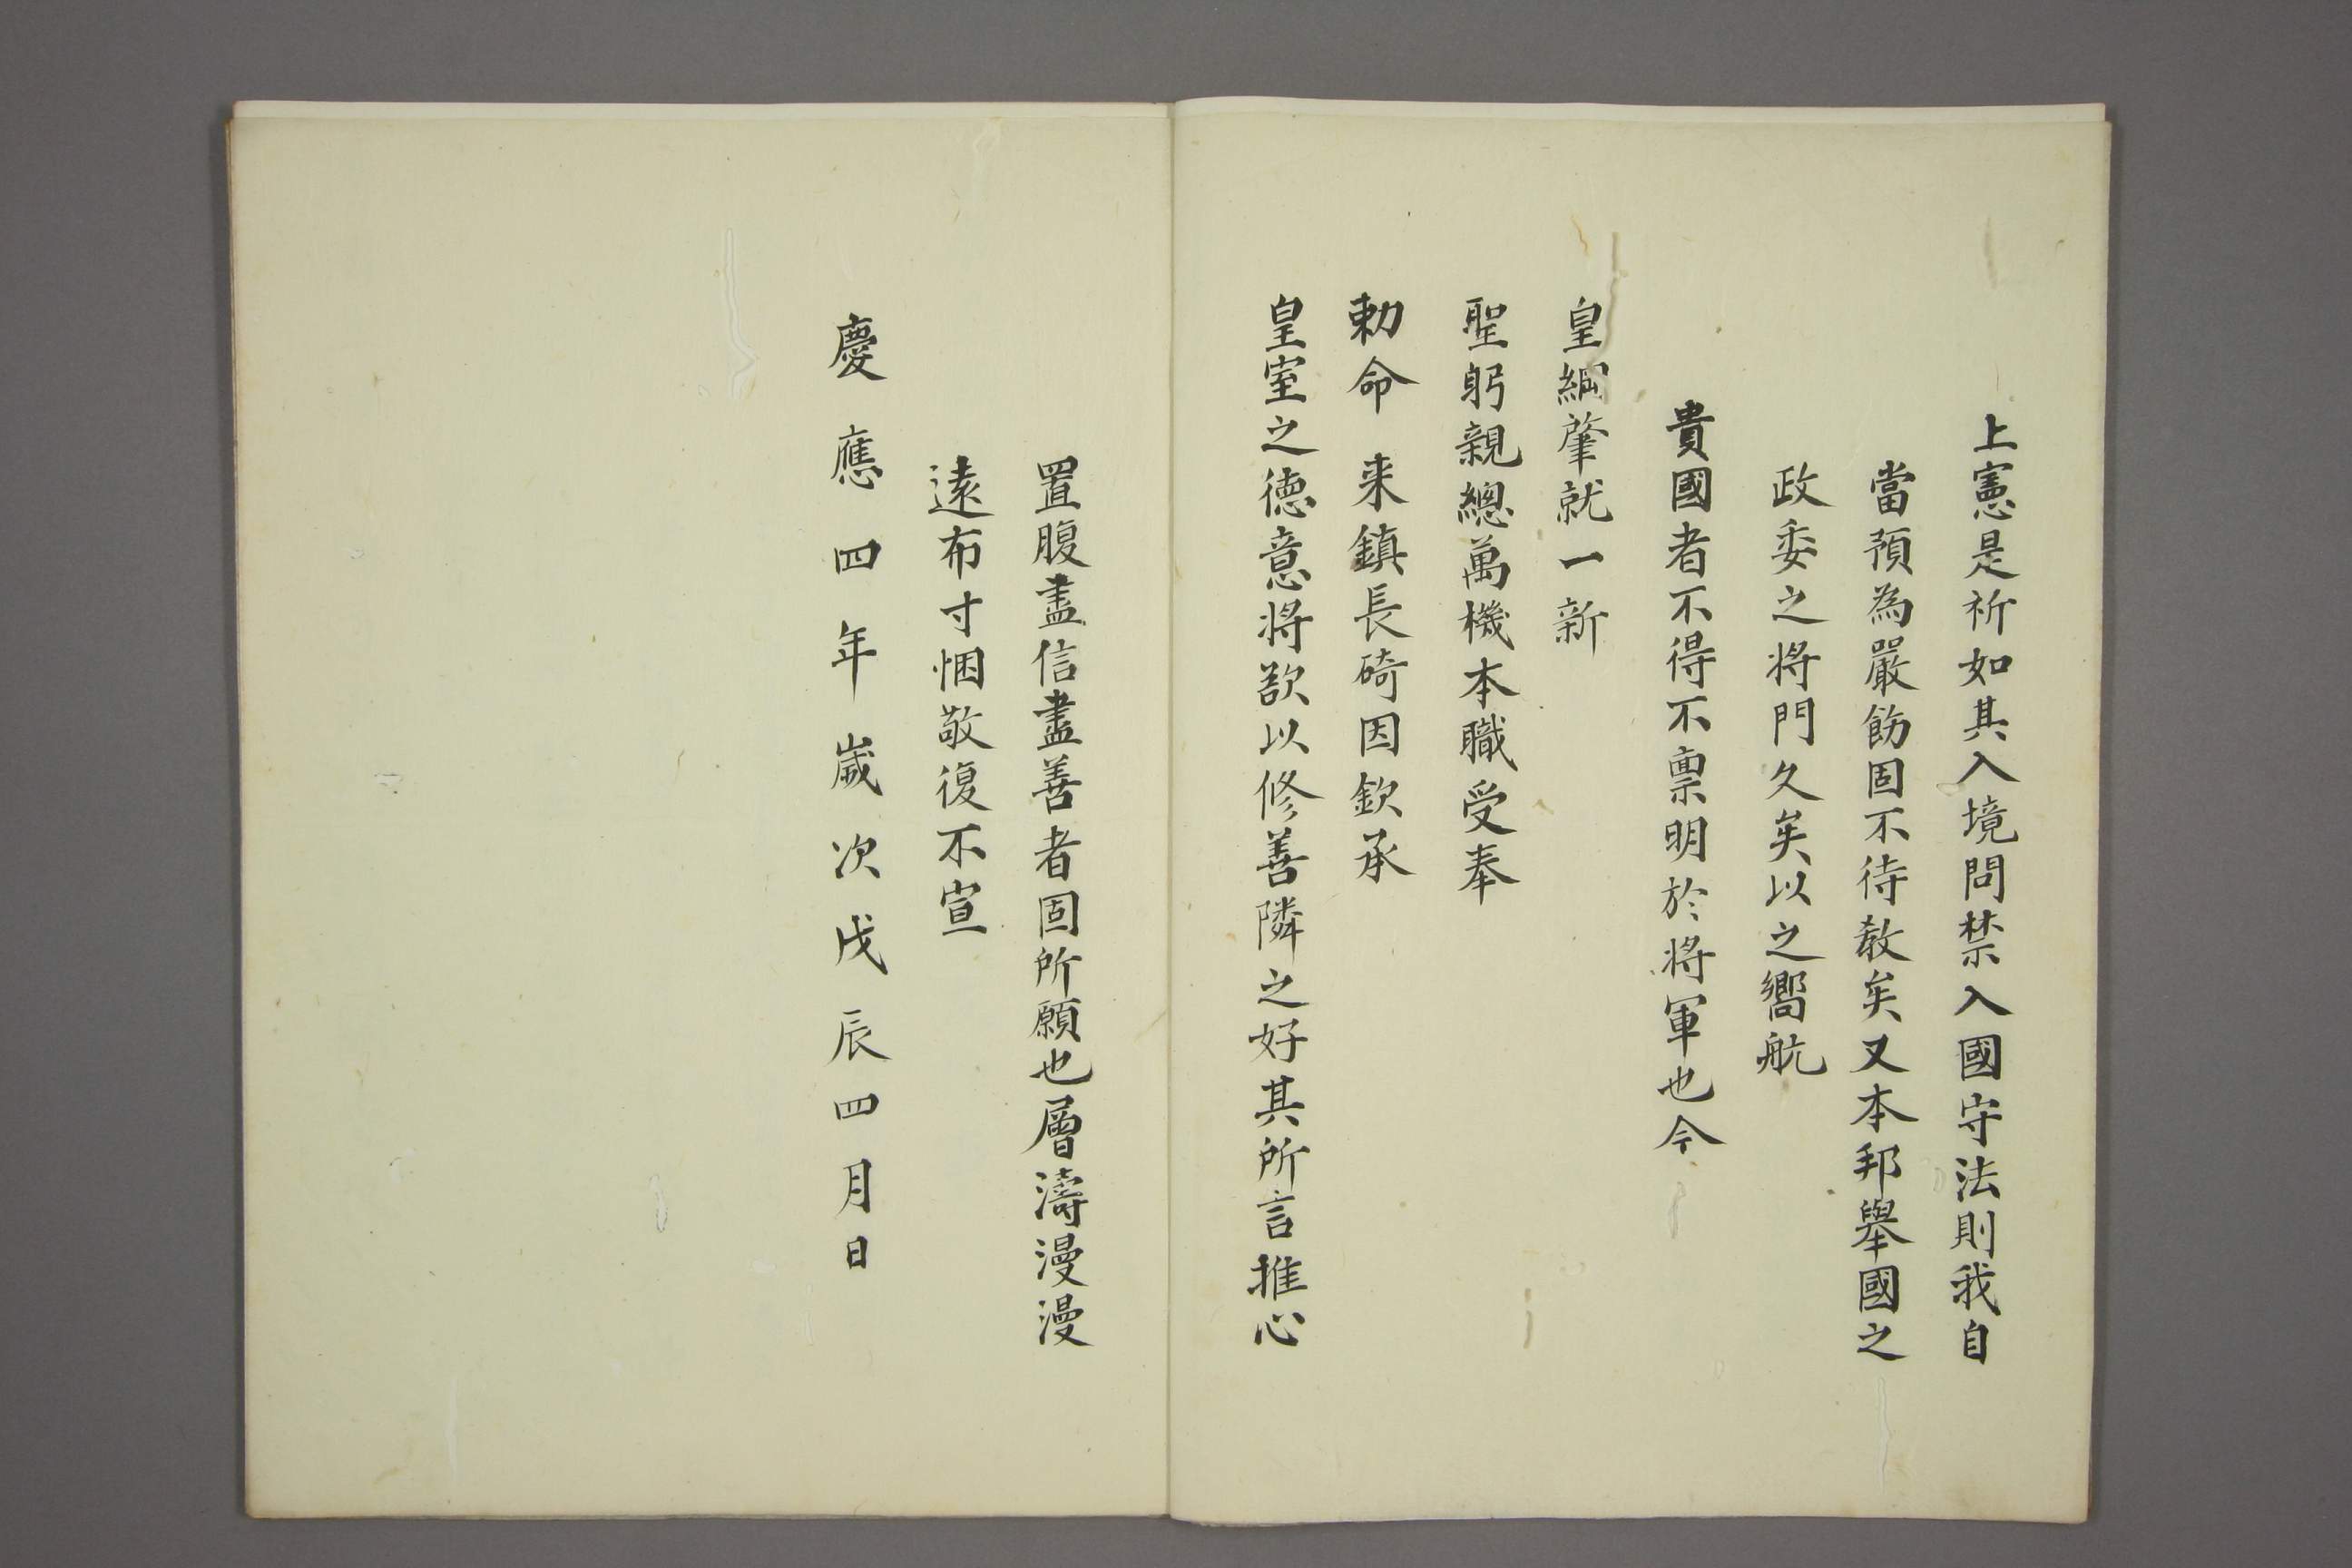 上憲是祈如其入境問禁入國守法則我自
當預為嚴飭固不待教矣又本邦舉國之
政委之將門久矣以之嚮航
貴國者不得不禀明於將軍也今
皇綱肇就一新
聖躬親總萬機本職受奉
勅命来鎮長碕因欽承
皇室之徳意將欲以修善隣之好其所言推心
置腹盡信盡善者固所願也層濤漫漫
遠布寸悃敬復不宣
慶應四年歲次戊辰四月日